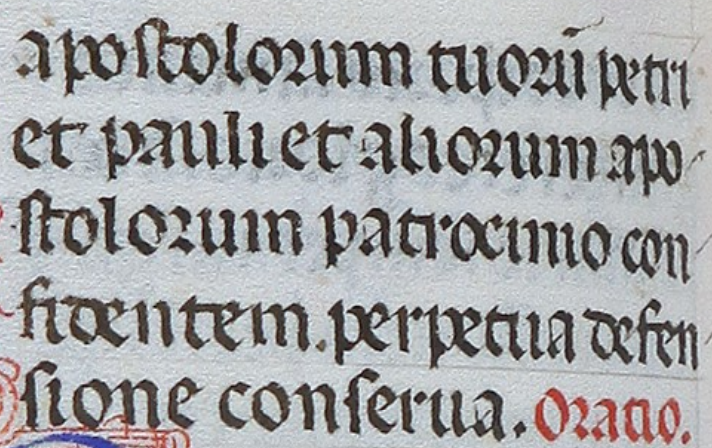 apostolorum tuorū petri
et pauli et aliorum apo-
stolorum patrocinio con-
fidentem. perpetua defen-
sione conserua. Oratio.